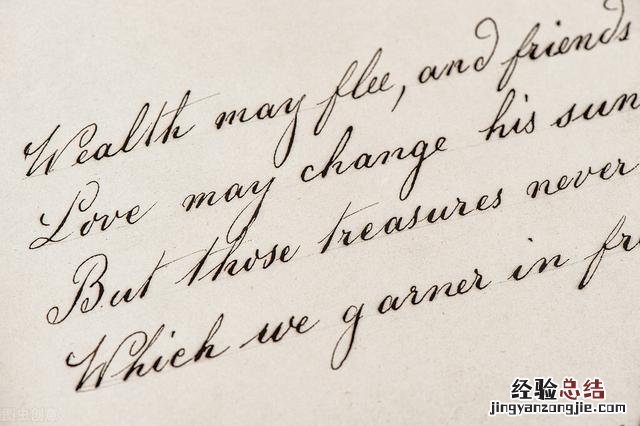 Wealth may flee, and friends
Love may change his sun
But those treasures never
Which we garner in fr
经验总结
jingyanzongjie.com
图虫创意